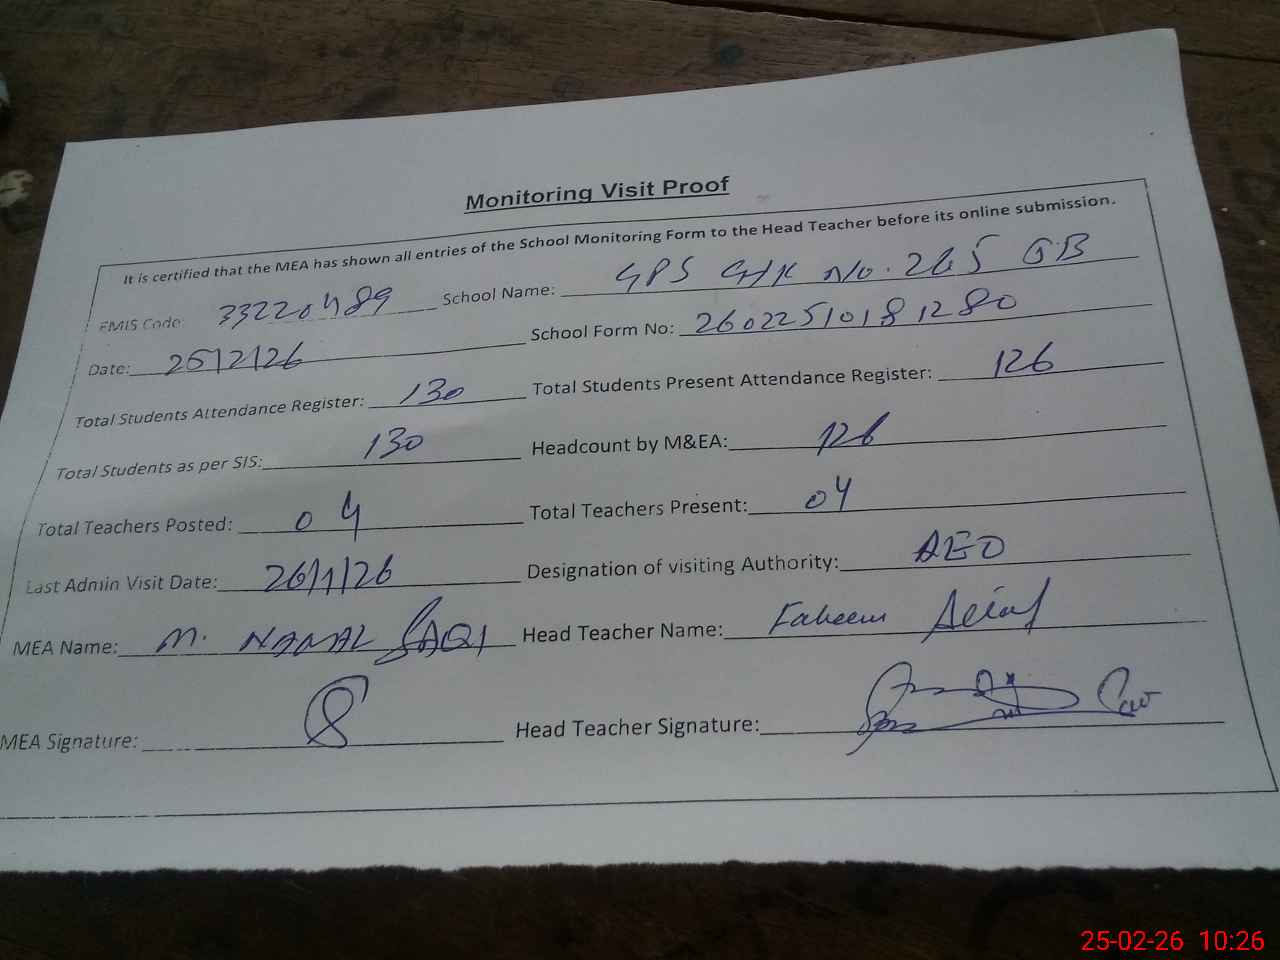 Monitoring Visit Proof
It is certified that the MEA has shown all entries of the School Monitoring Form to the Head Teacher before its online submission.
EMIS Code: 33220489 School Name: GPS Chk No. 265 GB
Date: 25/2/26 School Form No: 26022510181280
Total Students Attendance Register: 130 Total Students Present Attendance Register: 126
Total Students as per SIS: 130 Headcount by M&EA: 126
Total Teachers Posted: 04 Total Teachers Present: 04
Last Admin Visit Date: 26/1/26 Designation of visiting Authority: AEO
MEA Name: M. Head Teacher Name: Faheem
MEA Signature: Head Teacher Signature:
25-02-26 10:26